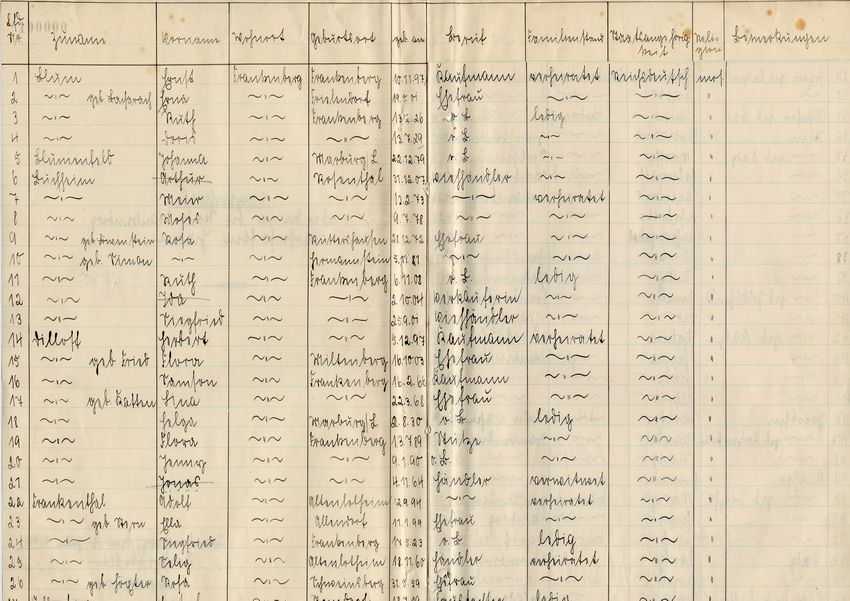 Lfd. Nr. Zuname Vorname Wohnort Geburtsort geb. am Beruf Familienstand Staatsangehörigkeit Religion Bemerkungen
1 Blum Ernst Frankenberg Frankenberg 10.11.97 Kaufmann verheiratet Reichsdeutsch mos
2 ~"~ geb. Bacharach Erna ~"~ 19.5.01 Ehefrau ~"~ ~"~ "
3 ~"~ Ruth ~"~ Frankenberg 13.2.26 o. B. ledig ~"~ "
4 ~"~ Doris ~"~ ~"~ 13.7.29 o. B. ~"~ ~"~ "
5 Blumenfeld Johanna ~"~ Marburg/L 22.12.79 o. B. ~"~ ~"~ "
6 Buchheim Arthur ~"~ Rosenthal 31.12.07 Viehhändler ~"~ ~"~ "
7 ~"~ Meier ~"~ ~"~ 12.2.73 ~"~ verheiratet ~"~ "
8 ~"~ Moses ~"~ ~"~ 9.7.78 ~"~ ~"~ ~"~ "
9 ~"~ geb. Löwenstein Rosa ~"~ Ruttershausen 21.12.72 Ehefrau ~"~ ~"~ "
10 ~"~ geb. Simon ~"~ ~"~ Hermannstein ~"~ ~"~ ~"~ "
11 ~"~ Ruth ~"~ Frankenberg 6.11.08 o. B. ledig ~"~ "
12 ~"~ Ida ~"~ ~"~ 2.10.04 Verkäuferin ~"~ ~"~ "
13 ~"~ Siegfried ~"~ ~"~ 25.9.01 Viehhändler ~"~ ~"~ "
14 Dilloff Herbert ~"~ ~"~ 5.12.97 Kaufmann verheiratet ~"~ "
15 ~"~ geb. Fried Flora ~"~ Miltenberg 16.10.03 Ehefrau ~"~ ~"~ "
16 ~"~ Samson ~"~ Frankenberg 16.2.66 Kaufmann ~"~ ~"~ "
17 ~"~ geb. Katten Lina ~"~ ~"~ 22.3.68 Ehefrau ~"~ ~"~ "
18 ~"~ Helga ~"~ Marburg/L 2.8.30 o. B. ledig ~"~ "
19 ~"~ Flora ~"~ Frankenberg 13.7.89 Stütze ~"~ ~"~ "
20 ~"~ Jenny ~"~ ~"~ 9.1.90 o. B. ~"~ ~"~ "
21 ~"~ Jonas ~"~ ~"~ 4.11.64 Händler verwitwet ~"~ "
22 Frankenthal Adolf ~"~ Altenlotheim 12.9.94 ~"~ verheiratet ~"~ "
23 ~"~ geb. Stern Ella ~"~ Allendorf 11.1.99 Ehefrau ~"~ ~"~ "
24 ~"~ Siegfried ~"~ Frankenberg o. B. ledig ~"~ "
25 ~"~ Selig ~"~ Altenlotheim 18.11.60 Händler verheiratet ~"~ "
26 ~"~ geb. Höxter Rosa ~"~ Schweinsberg Ehefrau ~"~ ~"~ "